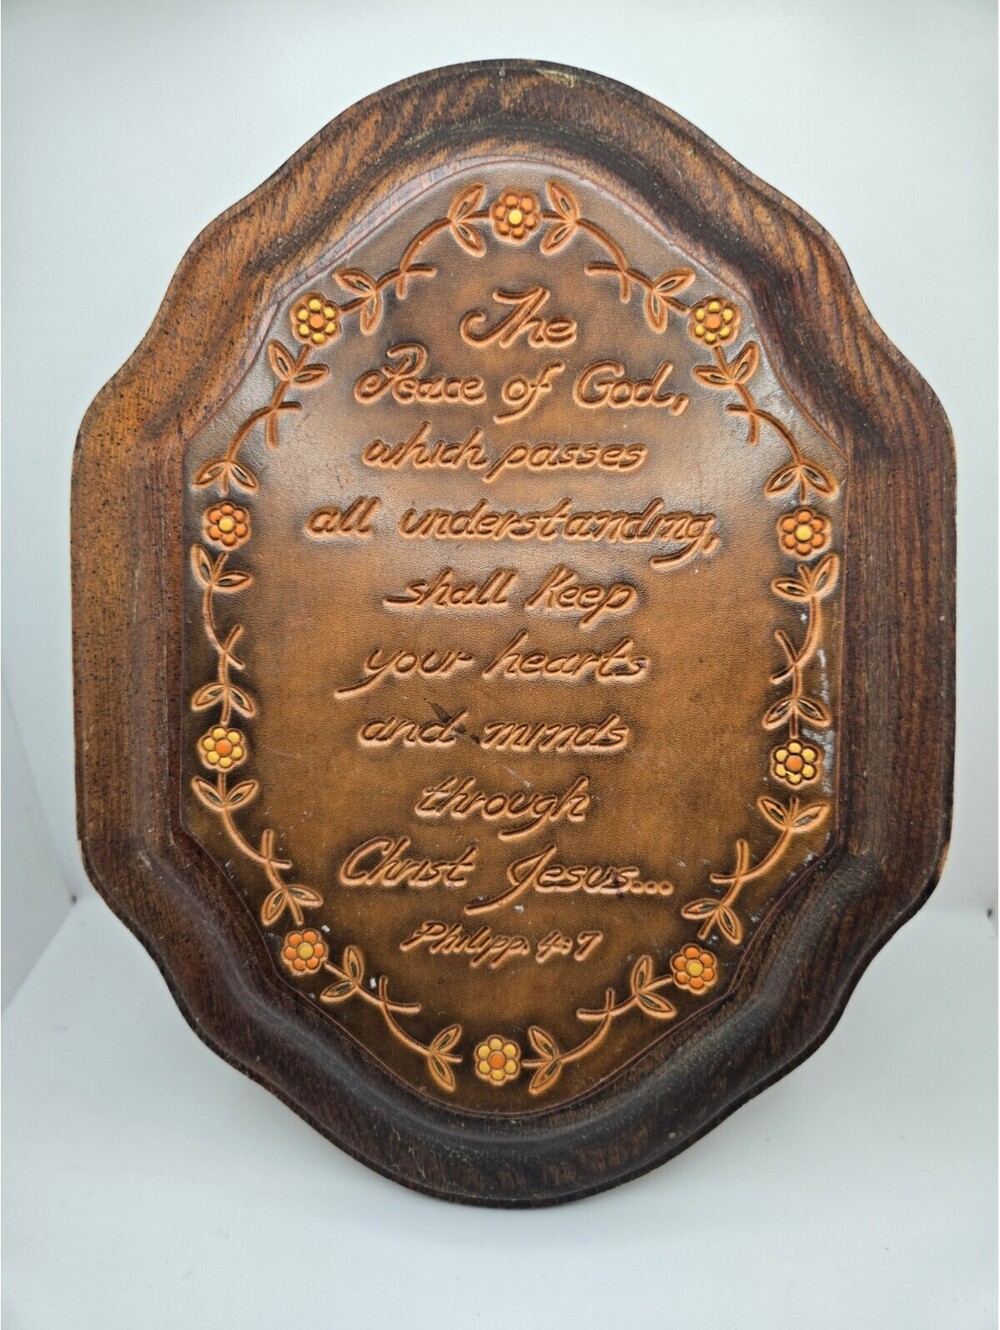 The
Peace of God,
which passes
all understanding,
shall keep
your hearts
and minds
through
Christ Jesus...
Philipp. 4:7